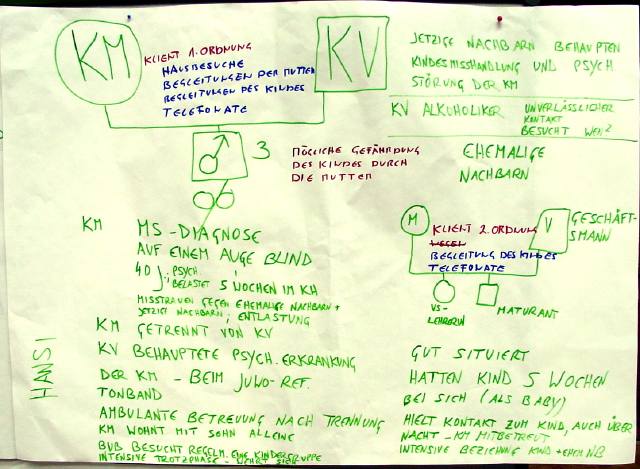 KM
KLIENT 1. ORDNUNG
HAUSBESUCHE
BEGLEITUNGEN DER MUTTER
BEGLEITUNGEN DES KINDES
TELEFONATE
KV
3
MÖGLICHE GEFÄHRDUNG
DES KINDES DURCH
DIE MUTTER
JETZIGE NACHBARN BEHAUPTEN
KINDESMISSHANDLUNG UND PSYCH
STÖRUNG DER KM
KV ALKOHOLIKER
UNVERLÄSSLICHER
KONTAKT
BESUCHT
EHEMALIGE
NACHBARN
M
KLIENT 2. ORDNUNG
BEGLEITUNG DES KINDES
TELEFONATE
V
GESCHÄFT-
SMANN
VS-
LEHRERIN
MATURANT
KM MS-DIAGNOSE
AUF EINEM AUGE BLIND
40 J., PSYCH.
BELASTET 5 WOCHEN IM KH
MISSTRAUEN GEGEN EHEMALIGE NACHBARN +
JETZIGE NACHBARN; ENTLASTUNG
KM GETRENNT VON KV
KV BEHAUPTETE PSYCH. ERKRANKUNG
DER KM - BEIM JUWO-REF.
TONBAND
AMBULANTE BETREUUNG NACH TRENNUNG
KM WOHNT MIT SOHN ALLEINE
BUB BESUCHT REGELM. EINE KINDERGRUPPE
INTENSIVE TROTZPHASE - WEHRT SICH
HANSI
GUT SITUIERT
HATTEN KIND 5 WOCHEN
BEI SICH (ALS BABY)
HIELT KONTAKT ZUM KIND, AUCH ÜBER
NACHT - KM MITBETREUT
INTENSIVE BEZIEHUNG KIND + EHEM. NB